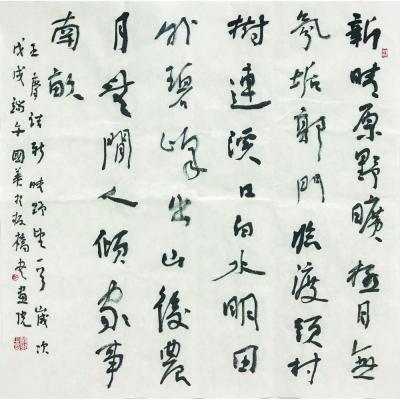 新晴原野曠極目無
氛垢郭門臨渡頭村
樹連溪口白水明田
外碧峰出山後農
月無閒人傾家事
南畝
王摩詰新晴野望一首歲次
戊戌端午國於板橋書畫院